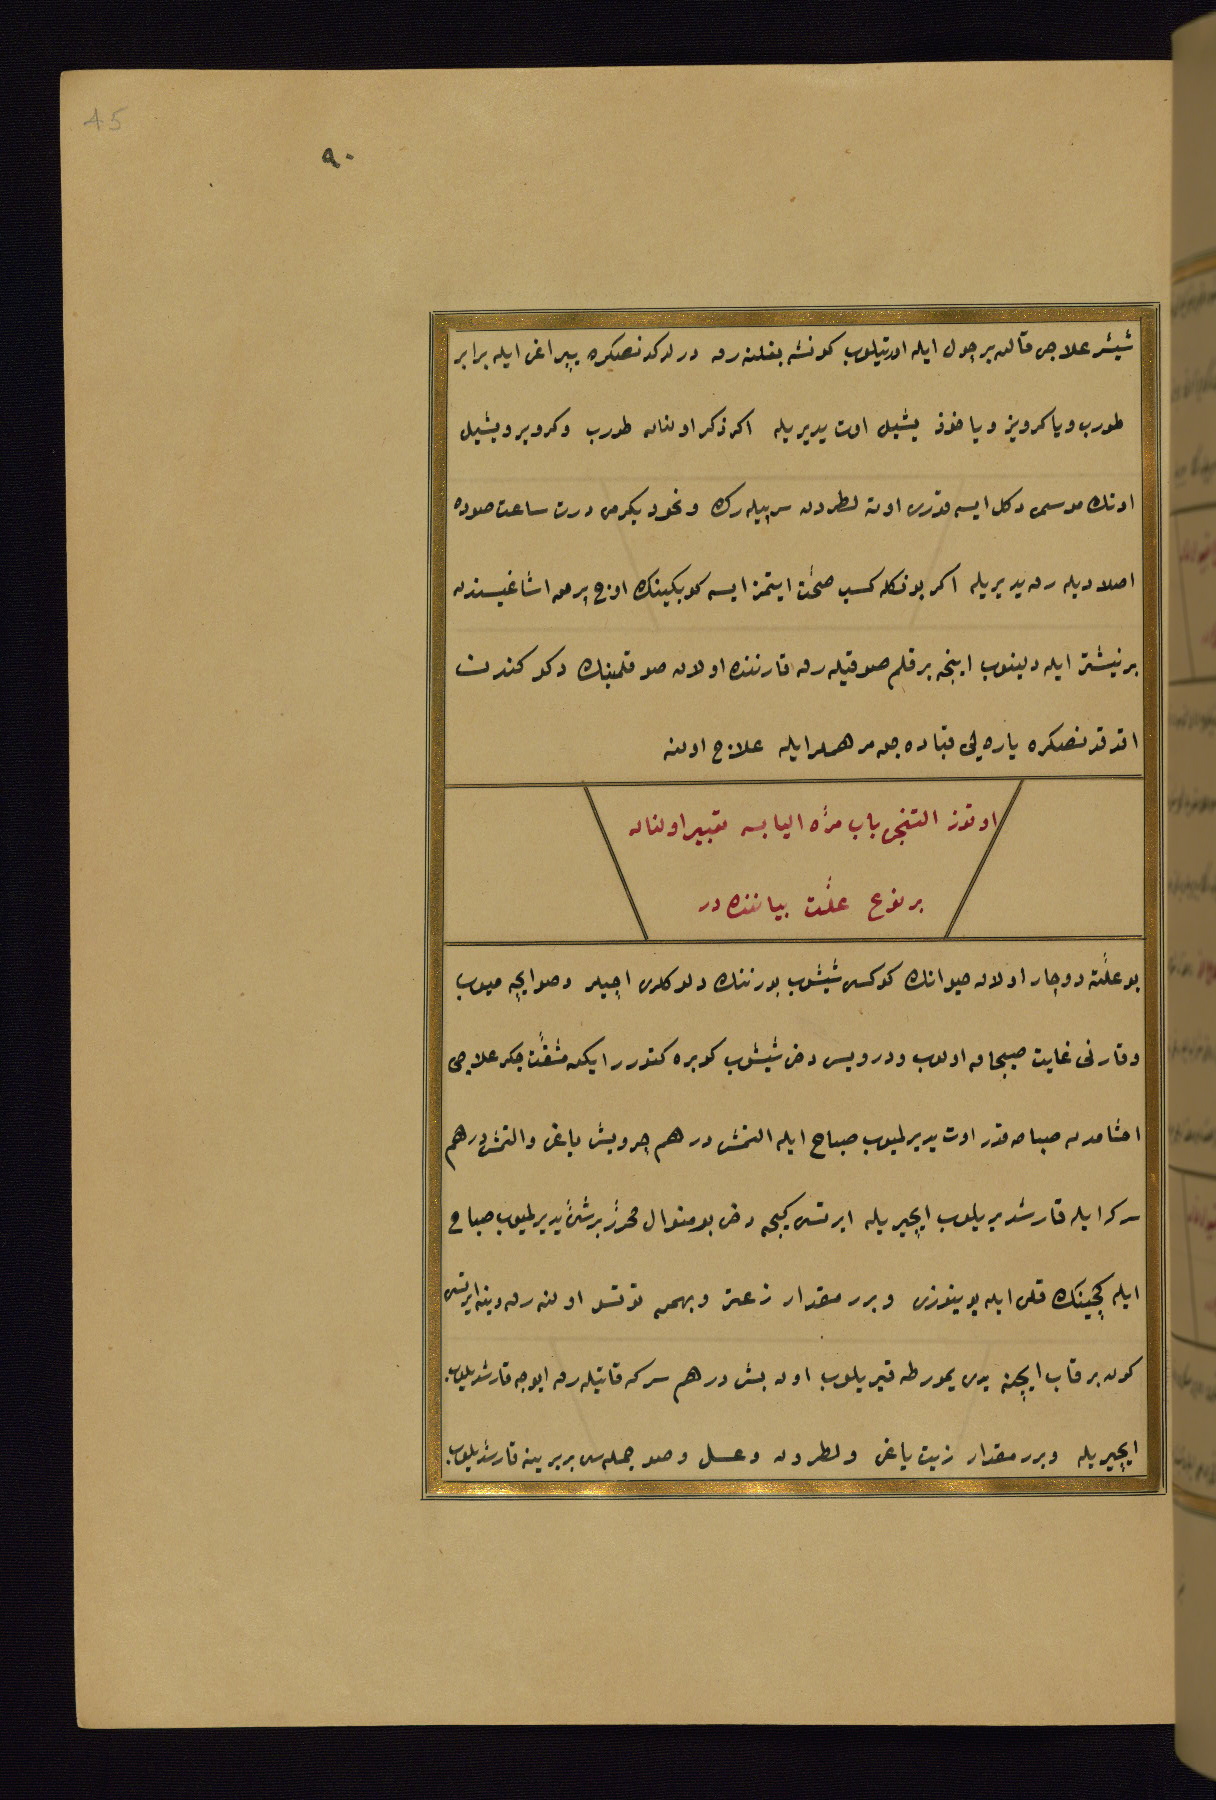 45
٩٠
شیشر علاجی قالین بر چول ایله اورتیلوب کونشه بغلنه رق درلدکدنصکره یپراغی ایله برابر
طورب ویا کرویز ویا خود یشیل اوت یدیریله اکر ذکر اولنان طورب وکرویز ویشیل
اوتك موسمی دکل ایسه قوری اوته نطرون سرپیله رك ونخود یکرمی درت ساعت صوده
اصلادیله رق یدیریله اکر بونکله کسب صحّت ایتمز ایسه کوبکینك اوچ پرمق اشاغیسندن
بر نیشتر ایله دلینوب اینجه بر قلم صوقیله رق قارننده اولان صو قلمینك دکو کندن
اقدقدنصکره یاره یی قپاده جق مرهملر ایله علاج اولنه
اوتوز التنجی باب مرّه الیابسه تعبیر اولنان
بر نوع علّت بیاننده در
بو علّته دوچار اولان حیوانك کوکسی شیشوب بورننك دلوکلری اچیلر وصو ایچه میوب
وقارنی غایت صیجاق اولوب ودرویسی دخی شیشوب کوبره کتورر ایکن مشقّت چکر علاجی
اخشامدن صباحه قدر اوت یدیرلمیوب صباح ایله التمش درهم چرویش یاغی والتمش درهم
سرکه ایله قارشدیریلوب ایچیریله ایرتسی کیجه دخی بو منوال محرّر بر شئ یدیرلمیوب صباح
ایله کچینك قلی ایله بوینوزی وبرر مقدار زعتر وبهمن توتسو اولنه رق وینه ایرتسی
کون بر قاب ایچنه یدی یمورطه قیریلوب اون بش درهم سرکه قاتیله رق ایوجه قارشدیریلوب
ایچیریله وبرر مقدار زیت یاغی ونطرون وعسل وصو جمله سی بربرینه قارشدیریلوب